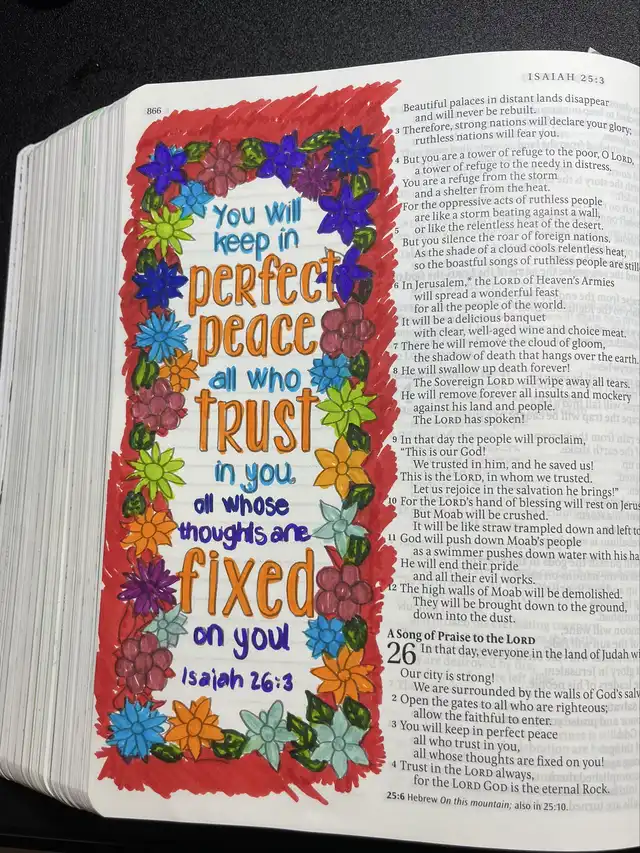 866
ISAIAH 25:3
You will
keep in
perfect
peace
all who
TRUST
in you,
all whose
thoughts are
fixed
on you!
Isaiah 26:3
Beautiful palaces in distant lands disappear
and will never be rebuilt.
3 Therefore, strong nations will declare your glory;
ruthless nations will fear you.
4 But you are a tower of refuge to the poor, O LORD,
a tower of refuge to the needy in distress.
You are a refuge from the storm
and a shelter from the heat.
For the oppressive acts of ruthless people
are like a storm beating against a wall,
5 or like the relentless heat of the desert.
But you silence the roar of foreign nations.
As the shade of a cloud cools relentless heat,
so the boastful songs of ruthless people are
6 In Jerusalem,* the LORD of Heaven's Armies
will spread a wonderful feast
for all the people of the world.
It will be a delicious banquet
with clear, well-aged wine and choice meat.
7 There he will remove the cloud of gloom,
the shadow of death that hangs over the earth.
8 He will swallow up death forever!
The Sovereign LORD will wipe away all tears.
He will remove forever all insults and mockery
against his land and people.
The LORD has spoken!
9 In that day the people will proclaim,
"This is our God!
We trusted in him, and he saved us!
This is the LORD, in whom we trusted.
Let us rejoice in the salvation he brings!"
10 For the LORD's hand of blessing will rest on
But Moab will be crushed.
It will be like straw trampled down and left
11 God will push down Moab's people
as a swimmer pushes down water with his
He will end their pride
and all their evil works.
12 The high walls of Moab will be demolished.
They will be brought down to the ground,
down into the dust.
A Song of Praise to the LORD
26 In that day, everyone in the land of Judah
Our city is strong!
We are surrounded by the walls of God's
2 Open the gates to all who are righteous;
allow the faithful to enter.
3 You will keep in perfect peace
all who trust in you,
all whose thoughts are fixed on you!
4 Trust in the LORD always,
for the LORD GOD is the eternal Rock.
25:6 Hebrew On this mountain; also in 25:10.